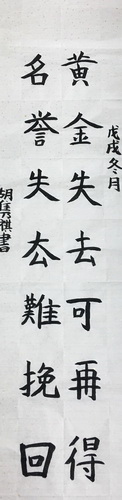 黄金失去可再得
名誉失去難挽回
戊戌冬月
胡隽祺書